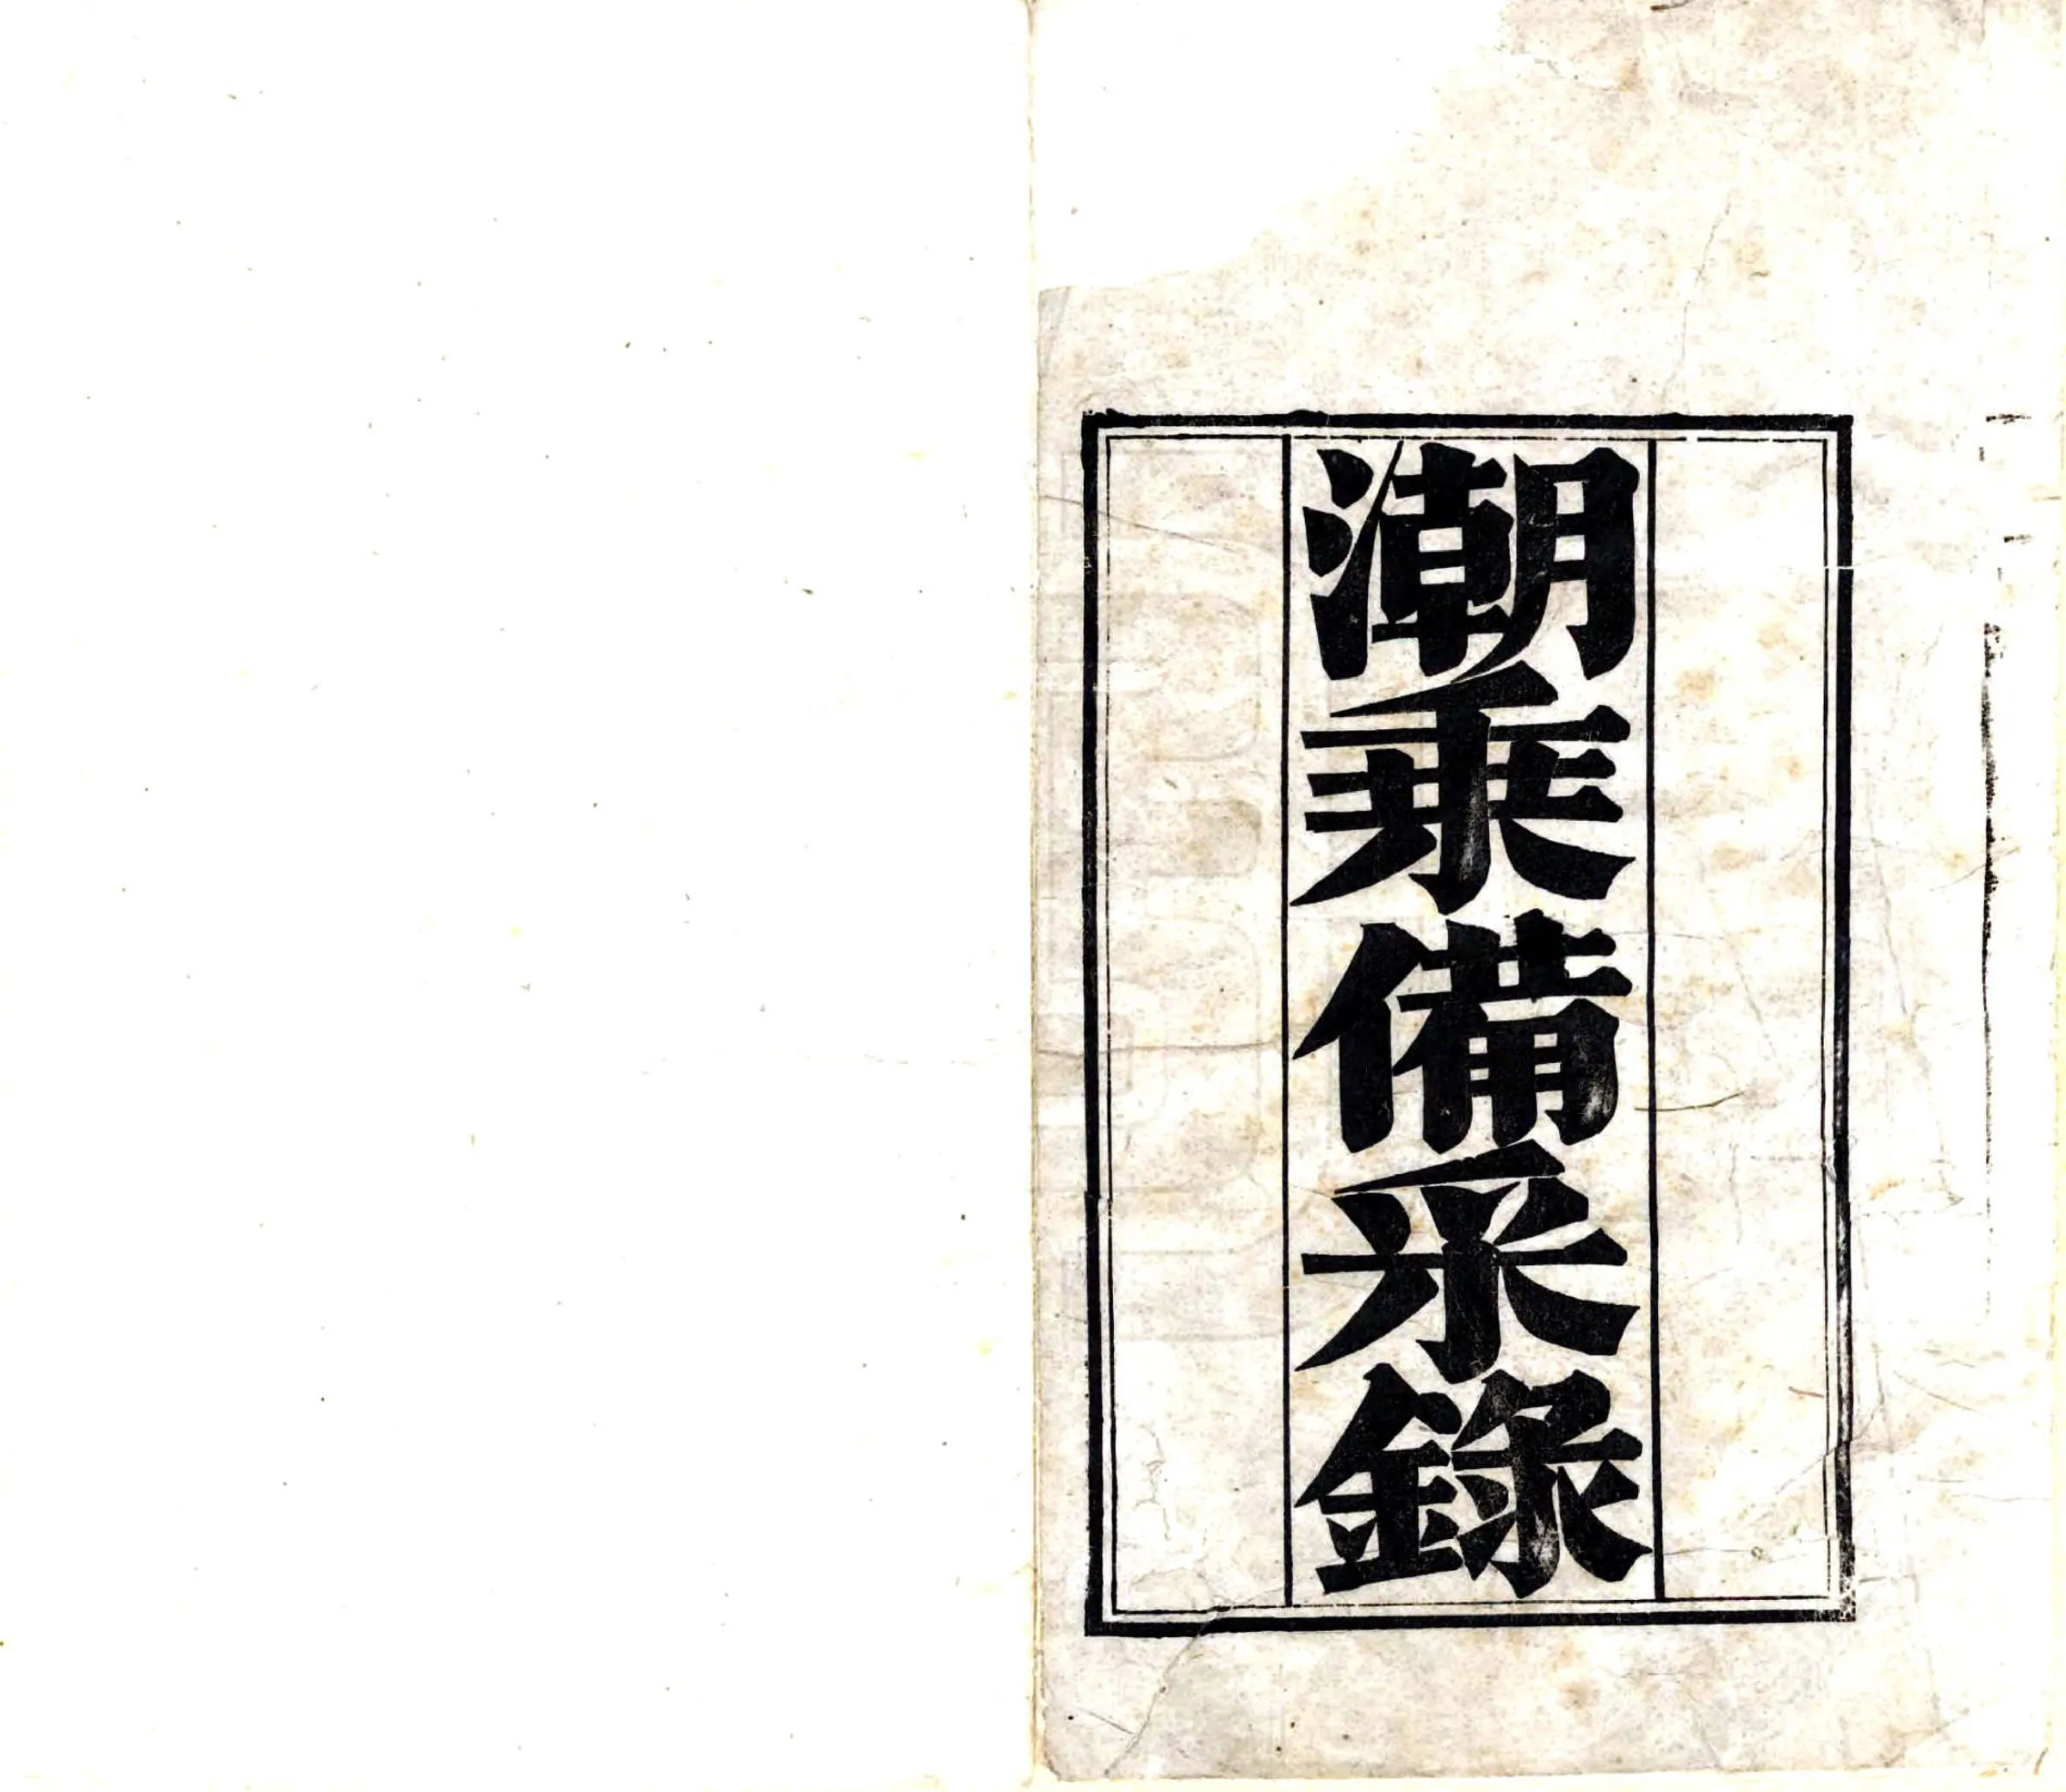 潮乘備采錄